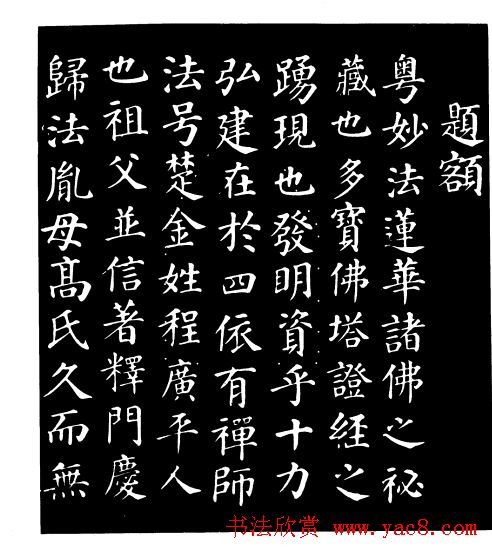 題額
粵妙法蓮華諸佛之祕
藏也多寶佛塔證經之
踴現也發明資乎十力
弘建在於四依有禪師
法号楚金姓程廣平人
也祖父並信著釋門慶
歸法胤母髙氏久而無
书法欣赏 www.yac8.com